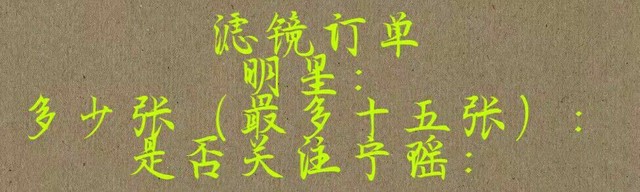 滤镜订单
明星：
多少张（最多十五张）：
是否关注宁瑶：